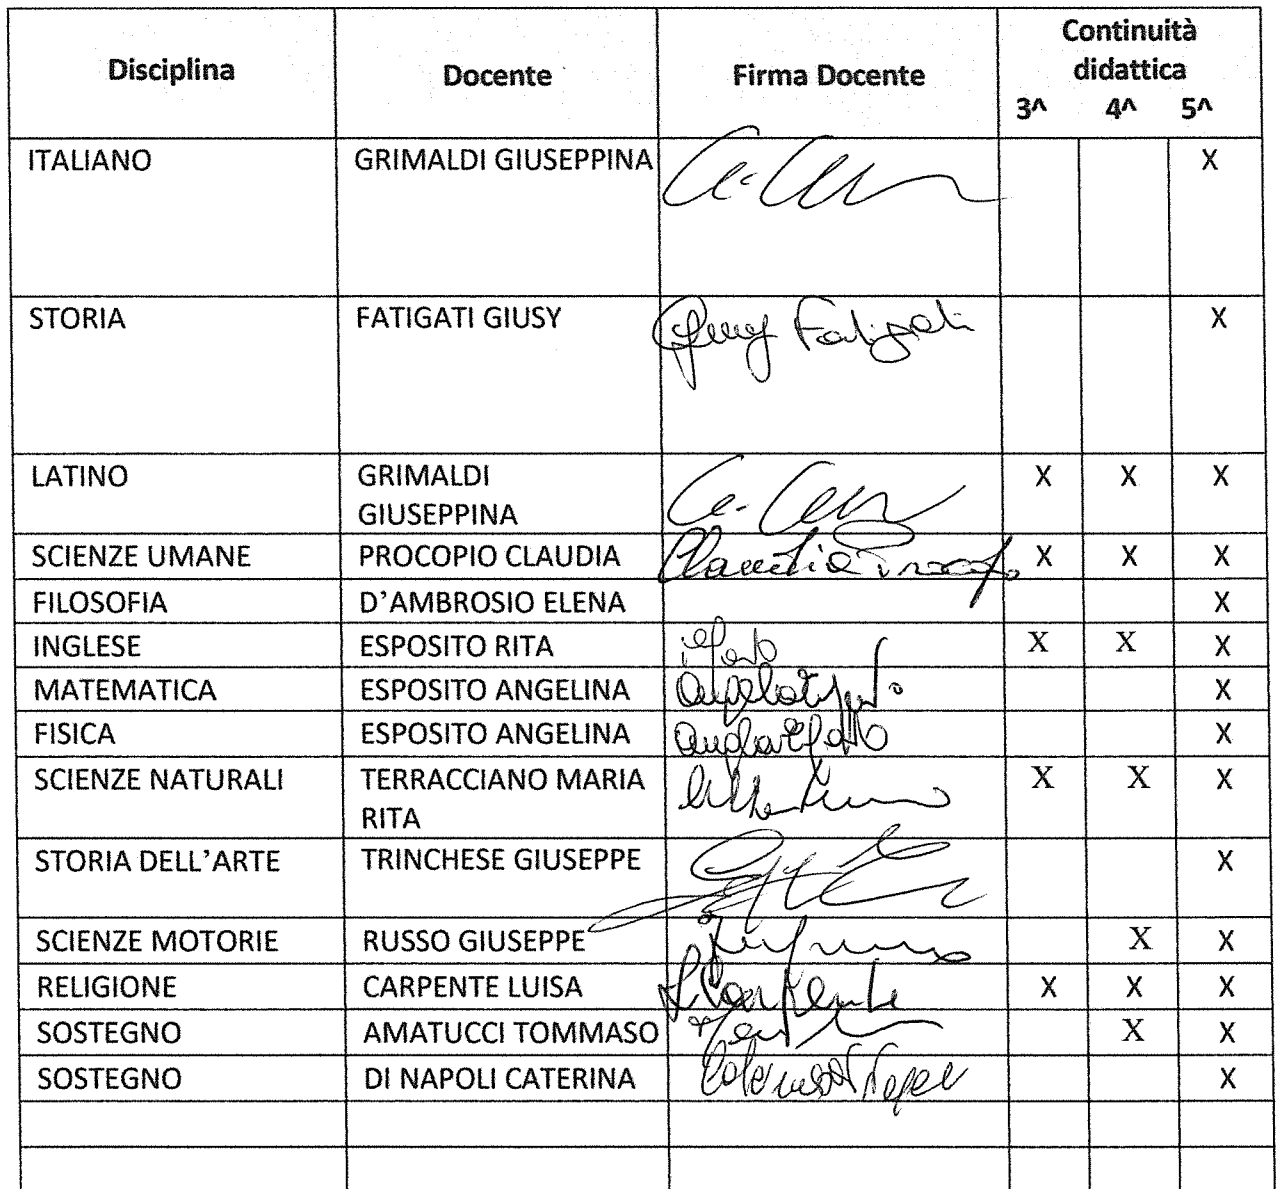 Disciplina Docente Firma Docente Continuità
didattica
3^ 4^ 5^
ITALIANO GRIMALDI GIUSEPPINA X
STORIA FATIGATI GIUSY Giusy Fatigati X
LATINO GRIMALDI X X X
GIUSEPPINA
SCIENZE UMANE PROCOPIO CLAUDIA Claudia Procopio X X X
FILOSOFIA D'AMBROSIO ELENA X
INGLESE ESPOSITO RITA X X X
MATEMATICA ESPOSITO ANGELINA X
FISICA ESPOSITO ANGELINA X
SCIENZE NATURALI TERRACCIANO MARIA X X X
RITA
STORIA DELL'ARTE TRINCHESE GIUSEPPE X
SCIENZE MOTORIE RUSSO GIUSEPPE X X
RELIGIONE CARPENTE LUISA L Carpente X X X
SOSTEGNO AMATUCCI TOMMASO X X
SOSTEGNO DI NAPOLI CATERINA X